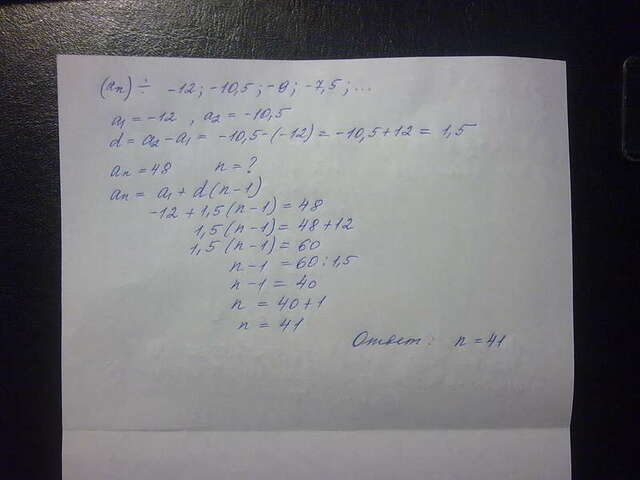 (aₙ) ÷ -12; -10,5; -9; -7,5; ...
a₁ = -12 , a₂ = -10,5
d = a₂ - a₁ = -10,5 - (-12) = -10,5 + 12 = 1,5
aₙ = 48 n = ?
aₙ = a₁ + d(n-1)
-12 + 1,5(n-1) = 48
1,5(n-1) = 48 + 12
1,5(n-1) = 60
n-1 = 60 : 1,5
n-1 = 40
n = 40 + 1
n = 41
Ответ: n = 41